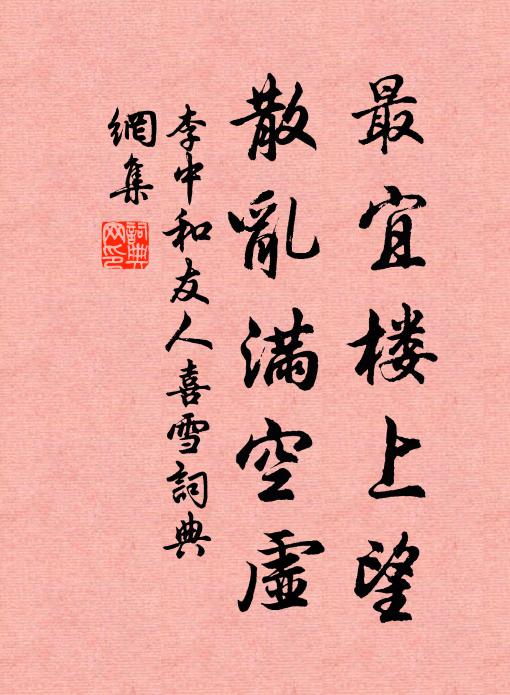 最宜楼上望
散亂滿空虛
李中和友人喜雪詞典
網集
詞典
网印